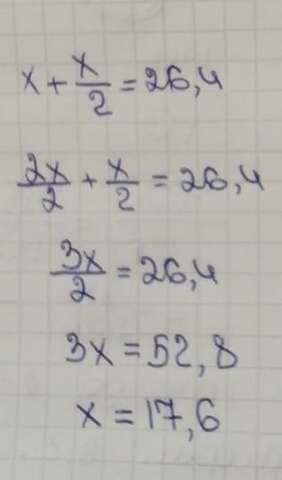 x + x/2 = 26,4
2x/2 + x/2 = 26,4
3x/2 = 26,4
3x = 52,8
x = 17,6